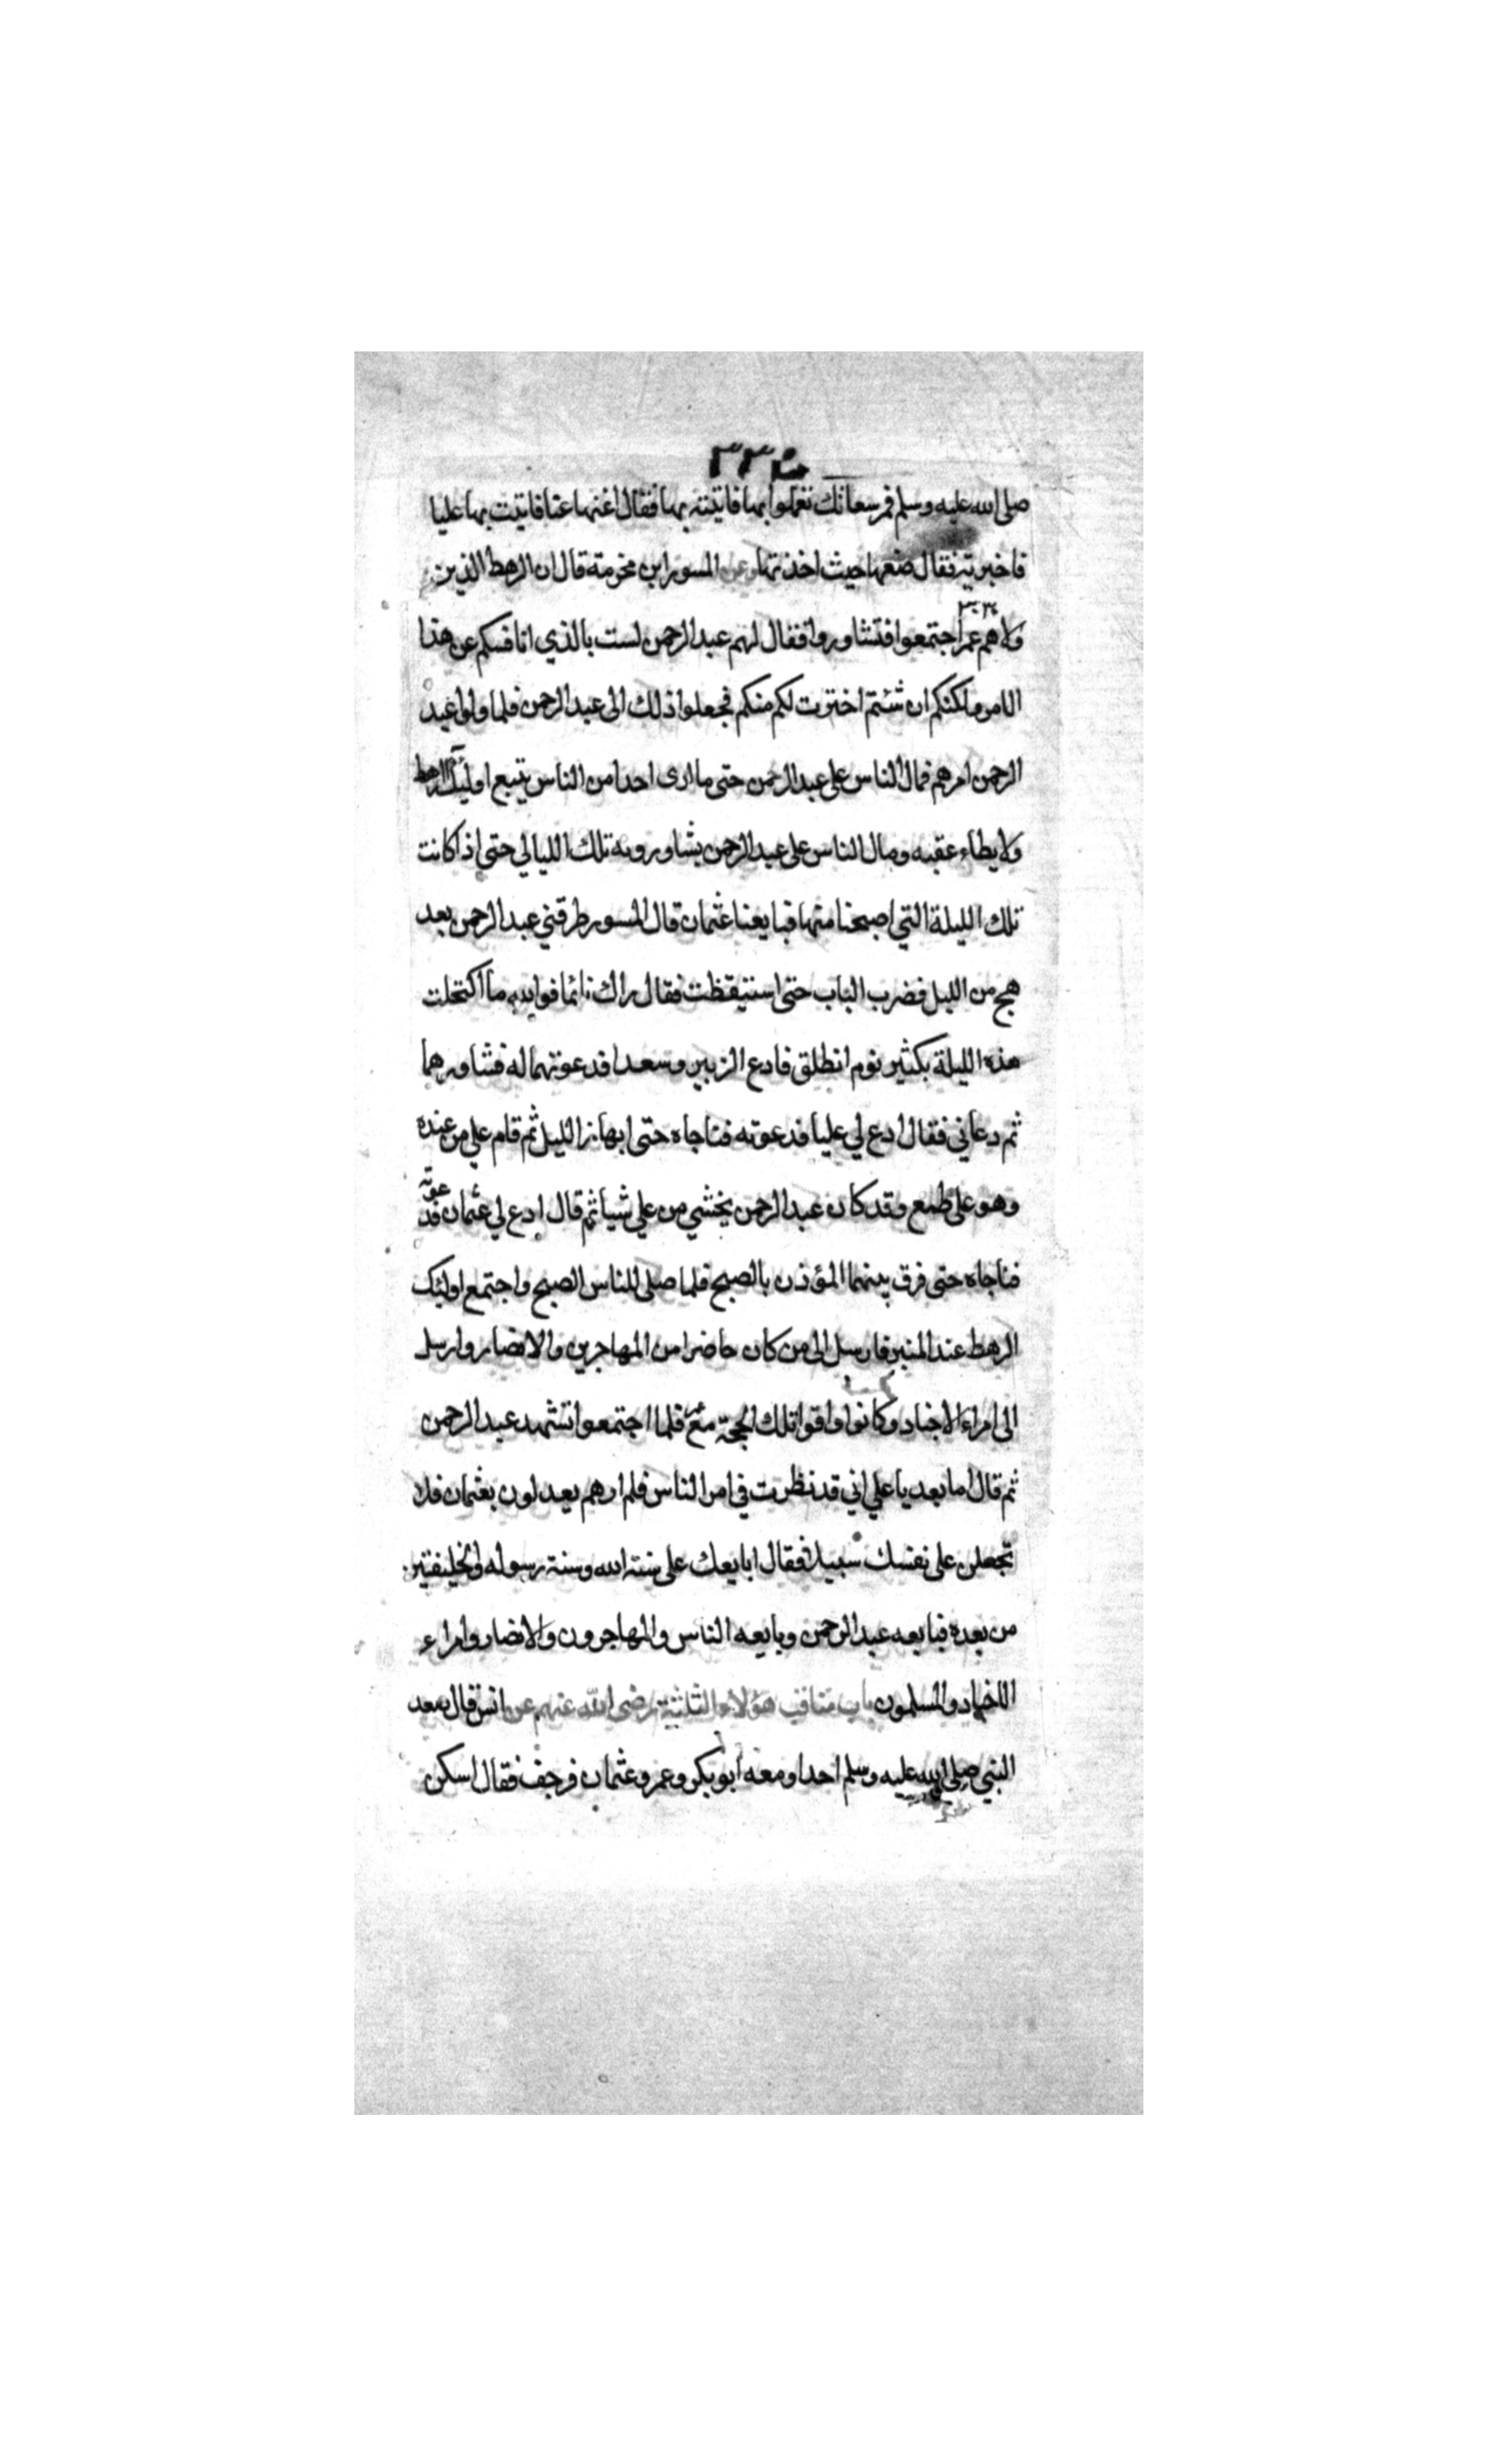 صلى الله عليه وسلم فمر سعاتك تعملوا بها فاتيته بها فقال اغنها عنا فاتيت بها عليا
فاخبرته فقال ضعها حيث اخذتها وعن المسور ابن مخرمة قال ان الرهط الذين
ولاهم عمر اجتمعوا فتشاوروا فقال لهم عبد الرحمن لست بالذي انافسكم عن هذا
الامر ولكنكم ان شئتم اخترت لكم منكم فجعلوا ذلك الى عبد الرحمن فلما ولوا عبد
الرحمن امرهم فمال الناس على عبد الرحمن حتى ما ارى احدا من الناس يتبع اوليك الرهط
ولا يطاء عقبه ومال الناس على عبد الرحمن يشاورونه تلك الليالي حتى اذا كانت
تلك الليلة التي اصبحنا منها فبايعنا عثمان قال المسور طرقني عبد الرحمن بعد
هجع من الليل فضرب الباب حتى استيقظت فقال اراك نائما فوالله ما اكتحلت
هذه الليلة بكثير نوم انطلق فادع الزبير وسعدا فدعوتهما له فشاورهما
ثم دعاني فقال ادع لي عليا فدعوته فناجاه حتى ابهار الليل ثم قام علي من عنده
وهو على طمع وقد كان عبد الرحمن يخشي من علي شيا ثم قال ادع لي عثمان فدعوته
فناجاه حتى فرق بينهما المؤذن بالصبح فلما صلى للناس الصبح واجتمع اوليك
الرهط عند المنبر فارسل الى من كان حاضرا من المهاجرين والانصار وارسل
الى امراء الاجناد وكانوا وافوا تلك الحجة مع عمر فلما اجتمعوا تشهد عبد الرحمن
ثم قال اما بعد يا علي اني قد نظرت في امر الناس فلم ارهم يعدلون بعثمان فلا
تجعلن على نفسك سبيلا فقال ابايعك على سنة الله وسنة رسوله والخليفتين
من بعده فبايعه عبد الرحمن وبايعه الناس والمهاجرون والانصار وامراء
الاجناد والمسلمون باب مناقب هؤلاء الثلثة رضى الله عنهم عن انس قال صعد
النبي صلى الله عليه وسلم احدا ومعه ابو بكر وعمر وعثمان فرجف فقال اسكن